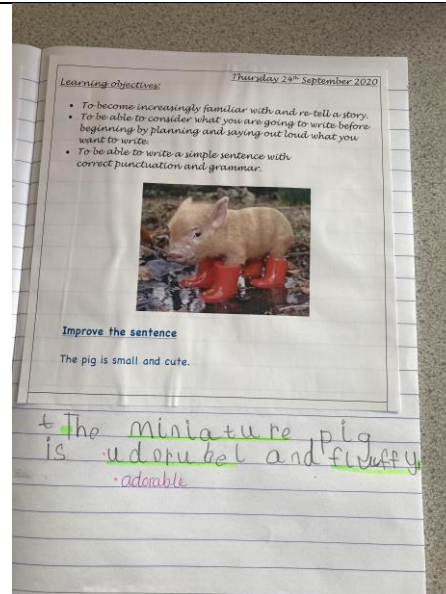 Thursday 24th September 2020
Learning objectives:
• To become increasingly familiar with and re-tell a story.
• To be able to consider what you are going to write before
beginning by planning and saying out loud what you
want to write.
• To be able to write a simple sentence with
correct punctuation and grammar.
Improve the sentence
The pig is small and cute.
t The miniature pig
is udorubel and fluffy.
• adorable